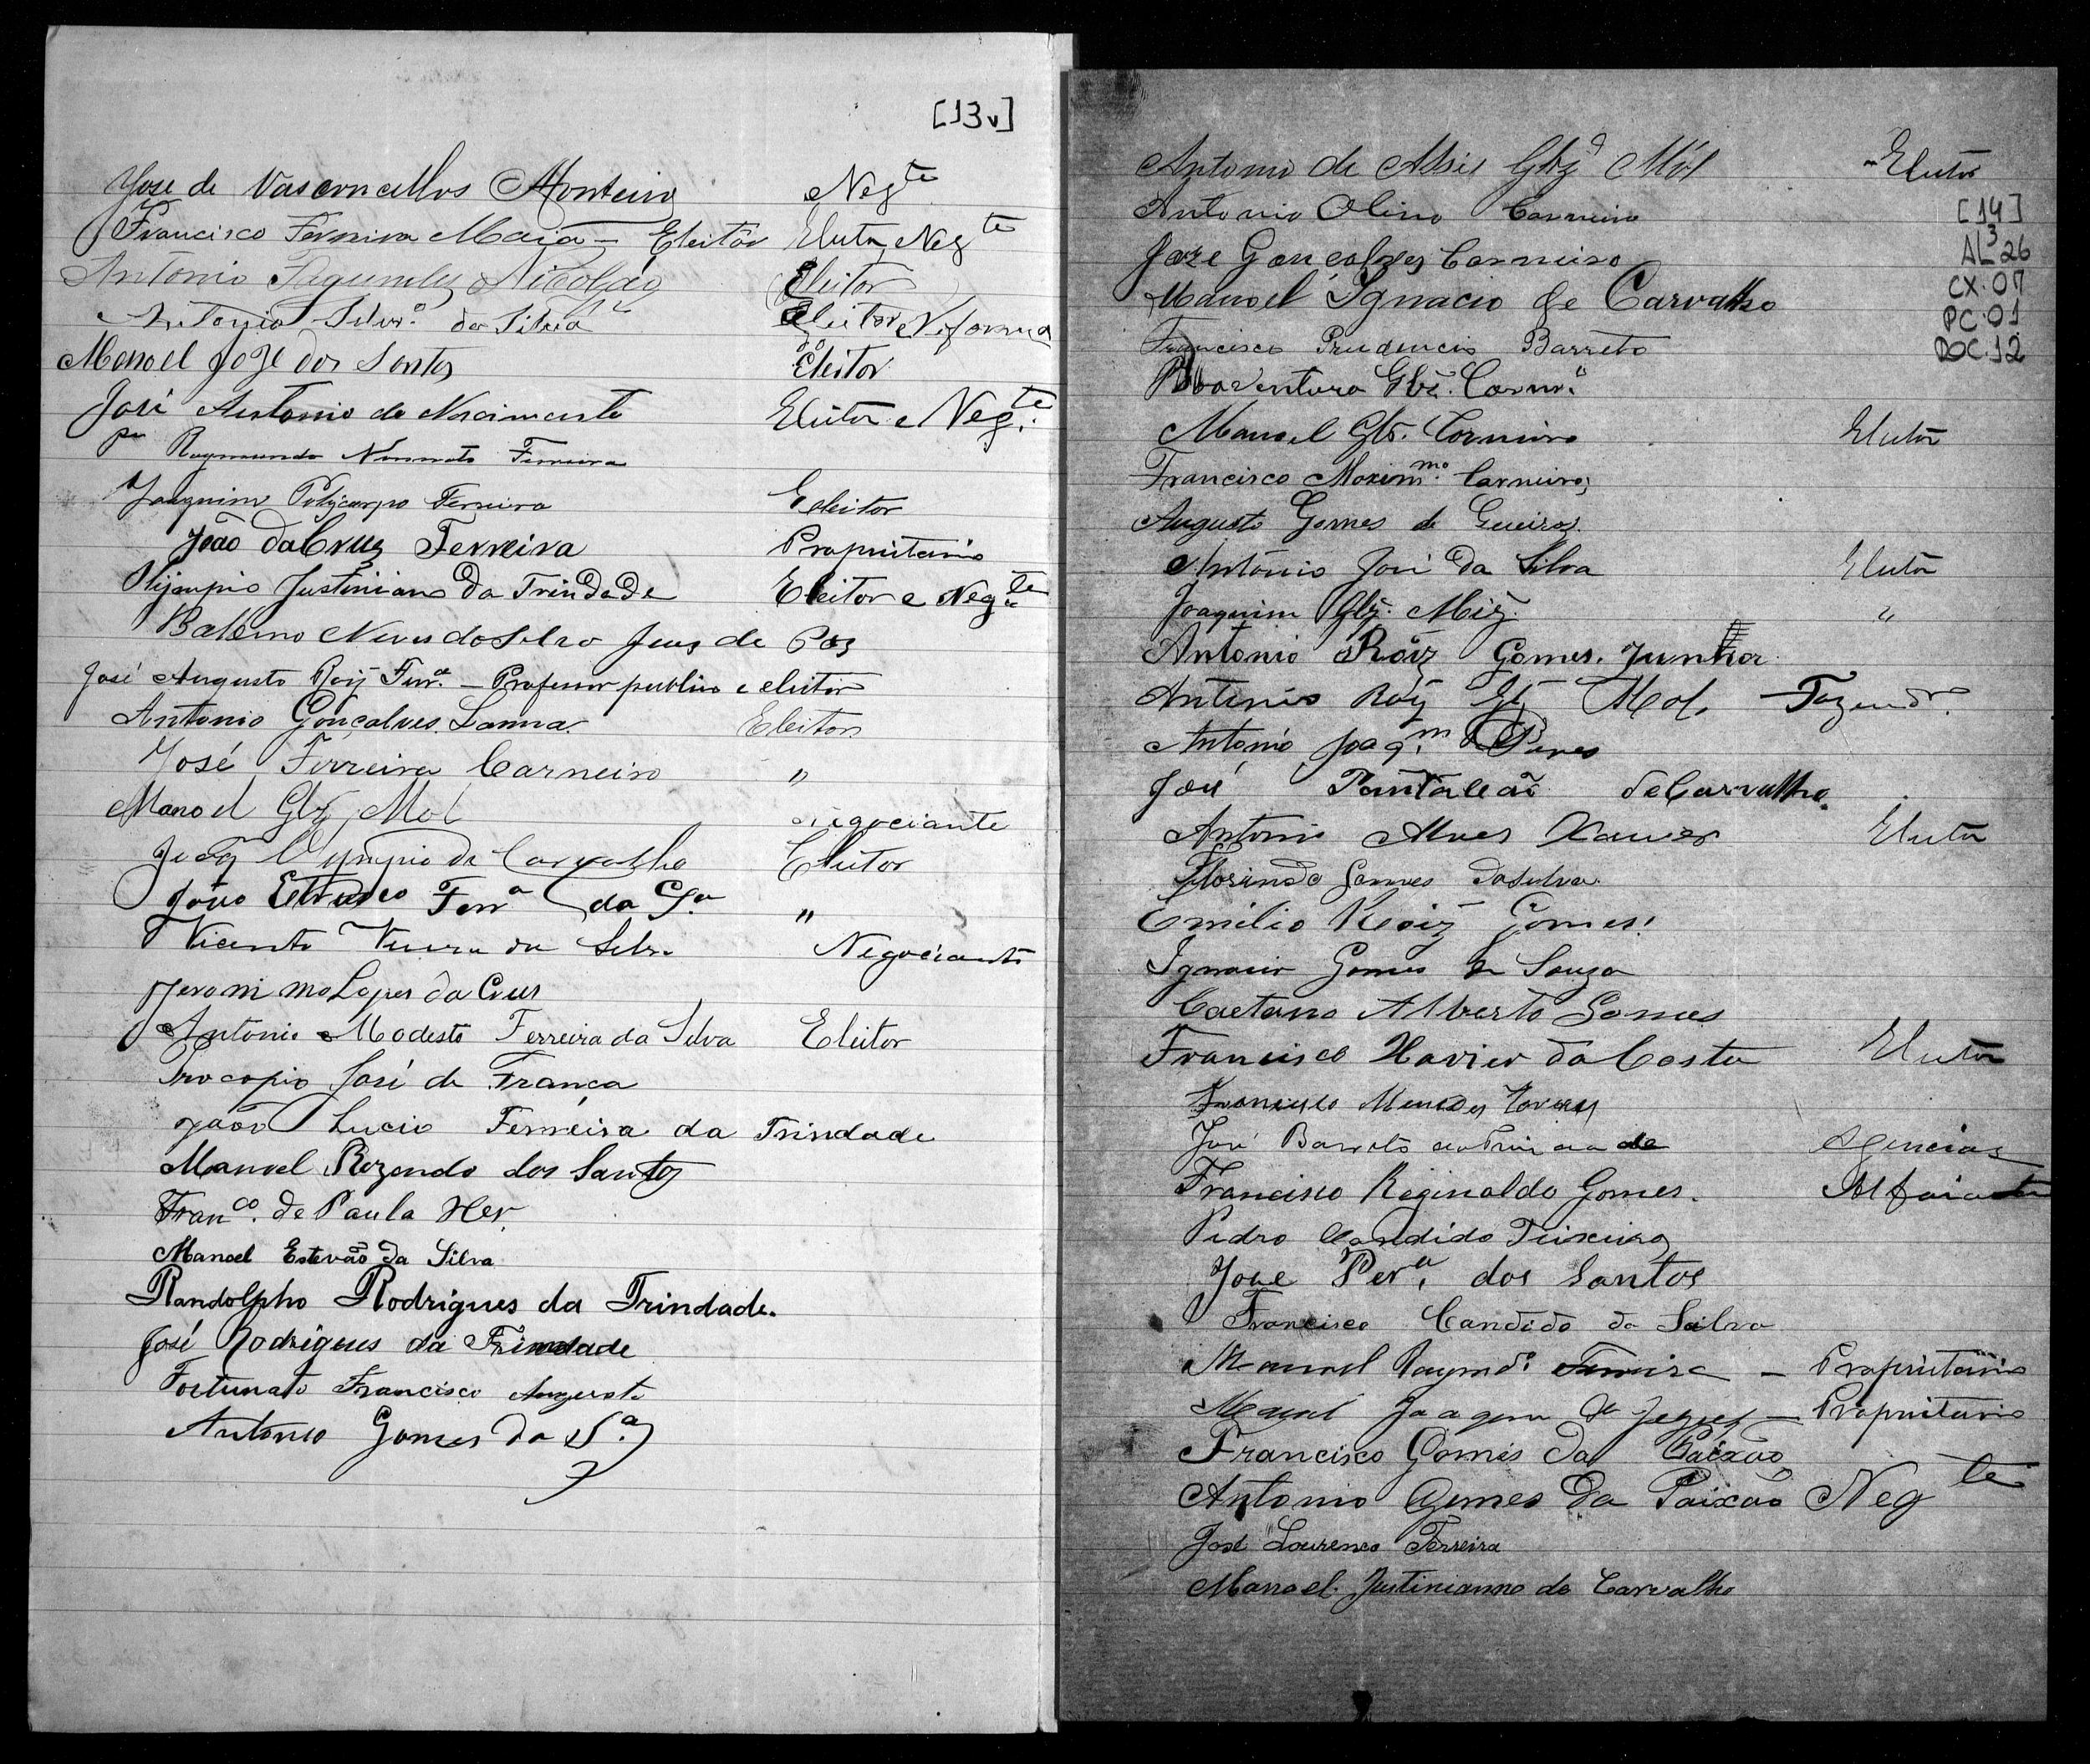 [13v]
José de Vasconcellos Monteiro Neg.te
Francisco Ferreira Maia - Eleitôr Eleitor, Neg.te
Antonio Fagundes Nicoláo Eleitor
Antonio da Silva Eleitor
Manoel Joze dos Santos Eleitor
José Antonio do Nascimento Eleitor e Neg.te
Raymundo Nonnato Ferreira
Joaquim Polycarpo Ferreira Eleitor
João da Cruz Ferreira Proprietario
Olijmpio Justiniano da Trindade Eleitor e Neg.te
Neves da Silva Juis de Pas
José Augusto Roiz Ferr.a - Professor publico e eleitor
Antonio Gonçalves Lanna. Eleitor
José Ferreira Carneiro "
Manoel Glz Mol negociante
Olympio de Carvalho Eleitor
João Ferr.a da S.a "
Vicente da Silva Negociante
Jeronimo Lopes da Crus
Antonio Modesto Ferreira da Silva Eleitor
Procopio José de França
João Lucio Ferreira da Trindade
Manoel Rezende dos Santos
Fran.co de Paula
Manoel Estevão da Silva
Randolpho Rodrigues da Trindade.
José Rodrigues da Trindade
Fortunato Francisco Augusto
Antonio Gomes da S.a
Antonio de Assis Mól Eleitor
Antonio Olino Carneiro
[14]
AL³26
Joze Gonçalves Carneiro
CX.07
Manoel Ignacio de Carvalho
PC.01
Francisco Prudencio Barreto
DOC.12
Boaventura Glz. Carnr.o
Manoel Glz. Carneiro Eleitor
Francisco Maxim.mo Carneiro
Augusto Gomes de
Antonio José da Silva Eleitor
Joaquim Glz. "
Antonio Róiz Gomes. Junior
Antonio Roiz Mol. Fazendr.o
Antonio Joaq.m
José Pantaleaõ de Carvalho.
Antonio Alves Xavier Eleitor
Florindo Gomes da Silva
Emilio Roiz Gomes.
Ignacio Gomes de Souza
Caetano Alberto Gomes
Francisco Xavier da Costa Eleitor
Francisco Mendes
José Barreto Agencias
Francisco Reginaldo Gomes. Alfaiate
Pedro Candido Teixeira
Jose Per.a dos Santos
Francisco Candido da Silva
Manoel Raymd.o Ferreira - Proprietario
Joaqim de - Proprietario
Francisco Gomes da Paixão
Antonio Gomes da Paixão Neg.te
José Lourenço Ferreira
Manoel. Justinianno de Carvalho